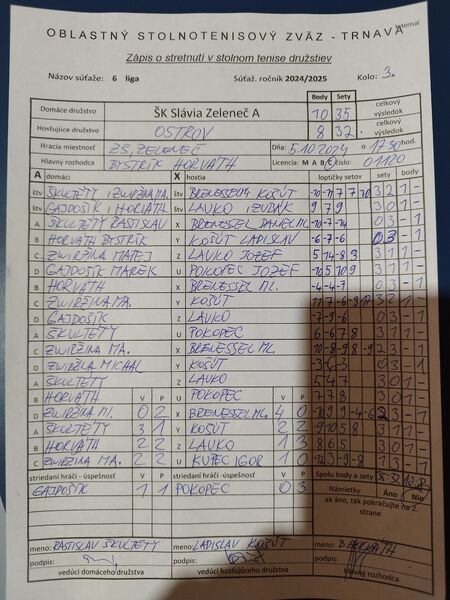 Internal
OBLASTNÝ STOLNOTENISOVÝ ZVÄZ - TRNAVA
Zápis o stretnutí v stolnom tenise družstiev
Názov súťaže: 6 liga Súťaž. ročník 2024/2025 Kolo: 3.
Body Sety
Domáce družstvo ŠK Slávia Zeleneč A 10 35 celkový výsledok
Hosťujúce družstvo OSTROV 8 32 celkový výsledok
Hracia miestnosť ZŠ ZELENEČ Dňa: 5.10.2024 o 17:30 hod.
Hlavný rozhodca BYSTRÍK HORVÁTH Licencia: M A B C číslo: 01120
A domáci X hostia loptičky sety sety body
štv ŠKULTÉTY i ZWIRŽINA MA. štv BRENESSEL M. i KOŠÚT 3 2 1 -
štv GAJDOŠÍK i HORVÁTH štv LAVKO i ZUBÁK 9 7 9 3 0 1 -
A ŠKULTÉTY RASTISLAV X BRENESSEL DANIEL ML. -10 -7 -14 0 3 - 1
B HORVÁTH BYSTRÍK Y KOŠÚT LADISLAV -6 -7 -6 0 3 - 1
C ZWIRŽINA MATEJ Z LAVKO JOZEF 5 14 -8 3 3 1 1 -
D GAJDOŠÍK MAREK U POKOPEC JOZEF -10 5 10 9 3 1 1 -
B HORVÁTH X BRENESSEL ML. -4 -4 -7 0 3 - 1
C ZWIRŽINA MA. Y KOŠÚT 11 7 -6 -9 3 2 1 -
D GAJDOŠÍK Z LAVKO -7 -9 -6 0 3 - 1
A ŠKULTÉTY U POKOPEC 6 -6 7 8 3 1 1 -
C ZWIRŽINA MA. X BRENESSEL ML. -10 -8 -9 - 1
D ZWIRŽINA MICHAL Y KOŠÚT 0 3 - 1
A ŠKULTÉTY Z LAVKO 5 4 7 3 0 1 -
B HORVÁTH V P U POKOPEC V P 7 7 8 3 0 1 -
D ZWIRŽINA MI. 0 2 X BRENESSEL ML. 4 0 9 -4 -6 2 3 - 1
A ŠKULTÉTY 3 1 Y KOŠÚT 2 2 -9 10 5 8 3 1 1 -
B HORVÁTH 2 2 Z LAVKO 1 3 8 6 5 3 0 1 -
C ZWIRŽINA MA. 2 2 U KUPEC IGOR 1 0 -9 -8 - 1
striedaní hráči - úspešnosť V P striedaní hráči - úspešnosť V P Spolu body a sety 35 32 10 8
GAJDOŠÍK 1 1 POKOPEC 0 3 Námietky Áno Nie
ak áno, tak pokračujte na 2. strane
meno: RASTISLAV ŠKULTÉTY meno: LADISLAV KOŠÚT meno: B. HORVÁTH
podpis: podpis: podpis:
vedúci domáceho družstva vedúci hosťujúceho družstva hlavný rozhodca